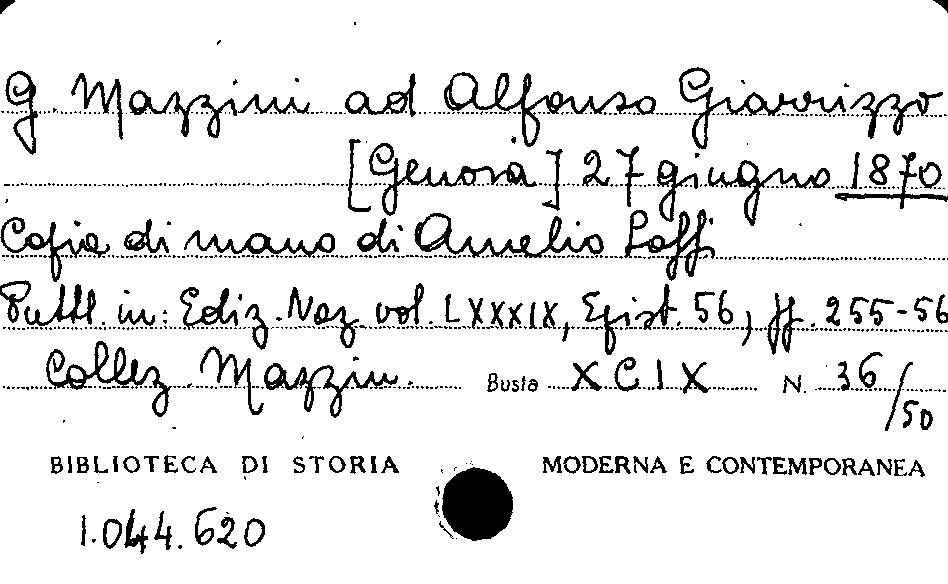 G. Mazzini ad Alfonso Giarrizzo
[Genova] 27 giugno 1870
Copia di mano di Amelio Saffi
Pubbl. in: Ediz. Naz. vol. LXXXIX, Epist. 56, pp. 255-56
Collez. Mazzin. Busta XCIX N. 36/50
BIBLIOTECA DI STORIA MODERNA E CONTEMPORANEA
1.044.620